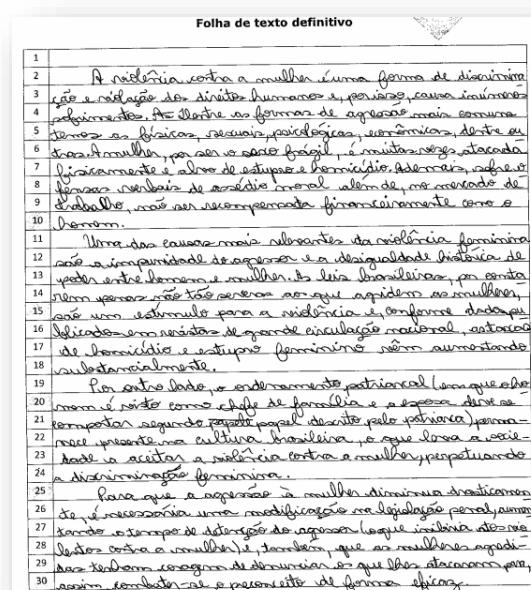 Folha de texto definitivo
1
2 A violência contra a mulher é uma forma de discrimina
3 ção e violação dos direitos humanos e, por isso, causa inúmeros
4 sofrimentos. As dentre as formas de agressão mais comuns
5 temos as físicas, sexuais, psicológicas, econômicas, dentre ou
6 tras. A mulher, por ser o sexo frágil, é muitas vezes atacada
7 fisicamente e alvo de estupro e homicídio. Ademais, sofre o
8 fensas verbais de assédio moral além de, no mercado de
9 trabalho, não ser recompensada financeiramente como o
10 homem.
11 Uma das causas mais relevantes da violência feminina
12 são a impunidade do agressor e a desigualdade histórica de
13 poder entre homem e mulher. As leis brasileiras, por conta
14 rem penas não tão severas aos que agridem as mulheres,
15 são um estímulo para a violência e, conforme dados pu
16 blicados em revistas de grande circulação nacional, as taxas
17 de homicídio e estupro feminino vêm aumentando
18 substancialmente.
19 Por outro lado, o ordenamento patriarcal (em que o ho
20 mem é visto como chefe de família e a esposa deve se
21 comportar segundo papel descrito pelo patriarca) perma-
22 nece presente na cultura brasileira, o que leva a socie-
23 dade a aceitar a violência contra a mulher, perpetuando
24 a discriminação feminina.
25 Para que a agressão à mulher diminua drasticamen
26 te, é necessária uma modificação na legislação penal, aumen
27 tando o tempo de detenção do agressor (o que inibiria atos vio
28 lentos contra a mulher) e, também, que as mulheres agredi-
29 das tenham coragem de denunciar os que lhes atacaram para,
30 assim combater-se o preconceito de forma eficaz.